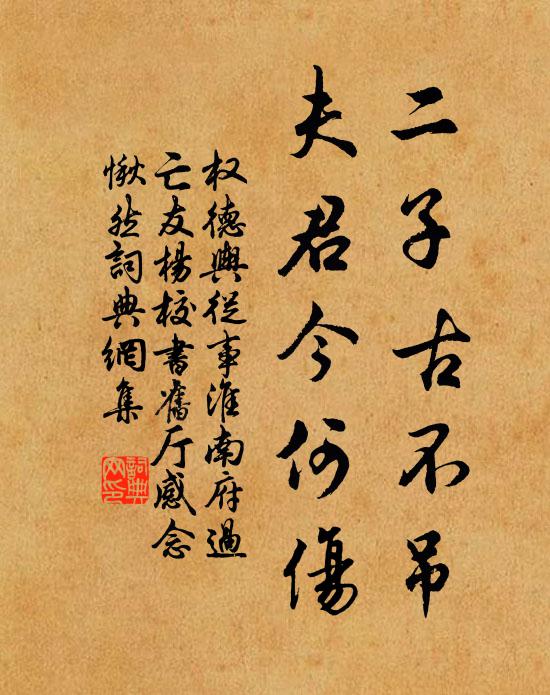 二子古不吊
夫君今何傷
权德輿從事淮南府過
亡友楊校書舊厅感念
愀然詞典網集
詞典
网印